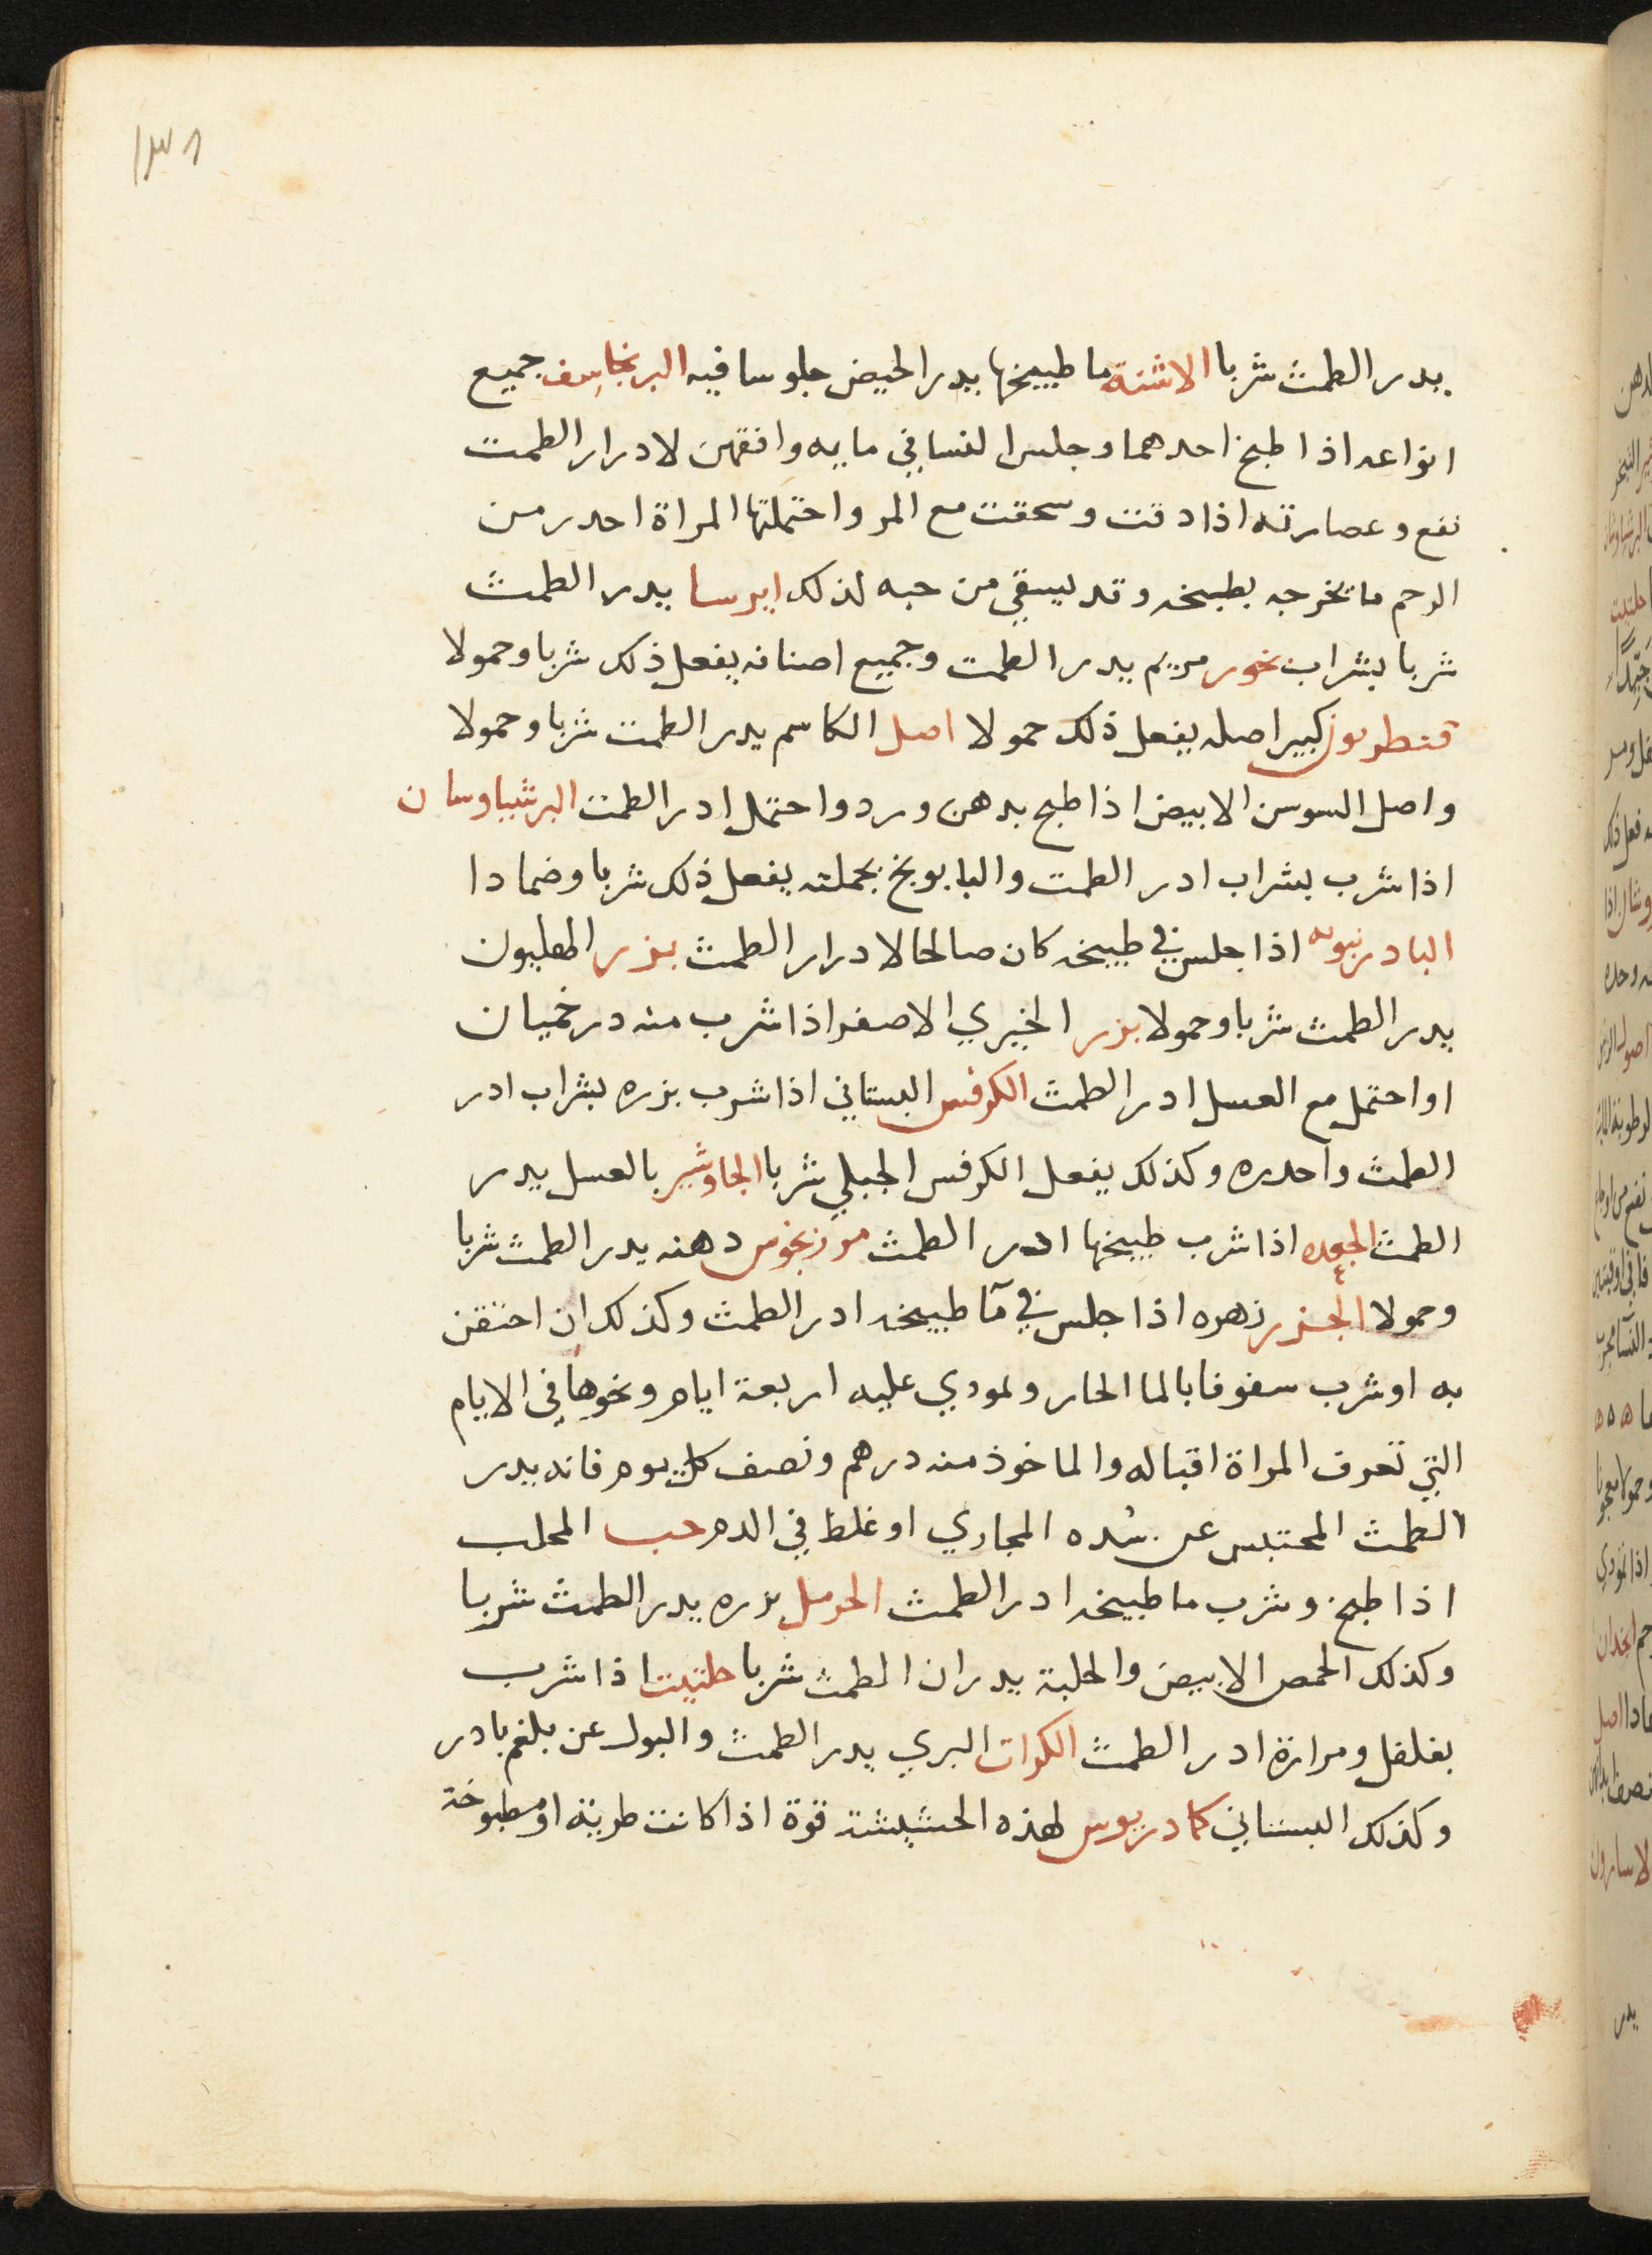 ١٣٨
يدر الطمث شربا الاشنة ما طبيخها يدر الحيض جلوسا فيه البرنجاسف جميع
انواعه اذا طبخ احدهما وجلس النسا في مايه وافقهن لادرار الطمت
نفع وعصارته اذا دقت وسحقت مع المر واحتملتها المراة احدر من
الرحم ما تخرجه بطبيخه وقد يسقي من حبه لذلك ايرسا يدر الطمث
شربا بشراب بخور مريم يدر الطمت وجميع اصنافه يفعل ذلك شربا وحمولا
قنطوريون كبير اصله يفعل ذلك حمولا اصل الكاسم يدر الطمت شربا وحمولا
واصل السوسن الابيض اذا طبخ بدهن ورد واحتمل ادر الطمت البرشياوسان
اذا شرب بشراب ادر الطمت والبابونج بجملته يفعل ذلك شربا وضمادا
البادرنبويه اذا جلس في طبيخه كان صالحا لادرار الطمث بزر الهليون
يدر الطمث شربا وحمولا بزر الخيري الاصفر اذا شرب منه درخميان
او احتمل مع العسل ادر الطمث الكرفس البستاني اذا شرب بزره بشراب ادر
الطمث واحدره وكذلك يفعل الكرفس الجبلي شربا الجاوشير بالعسل يدر
الطمث الجعده اذا شرب طبيخها ادر الطمث مرزنجوس دهنه يدر الطمث شربا
وحمولا الجزر زهره اذا جلس في مآ طبيخه ادر الطمث وكذلك ان احتقن
به او شرب سفوفا بالما الحار وتمودي عليه اربعة ايام ونحوها في الايام
التي تعرف المراة اقباله والماخوذ منه درهم ونصف كل يوم فانه يدر
الطمث المحتبس عن سُده المجاري او غلظ في الدم حب المحلب
اذا طبخ وشرب ما طبيخه ادر الطمث الحرمل بزره يدر الطمث شربا
وكذلك الحمص الابيض والحلبة يدران الطمث شربا حلتيت اذا شرب
بفلفل ومرارة ادر الطمث الكراث البري يدر الطمث والبول عن بلغم بادر
وكذلك البستاني كمادريوس لهذه الحشيشة قوة اذا كانت طرية او مطبوخة